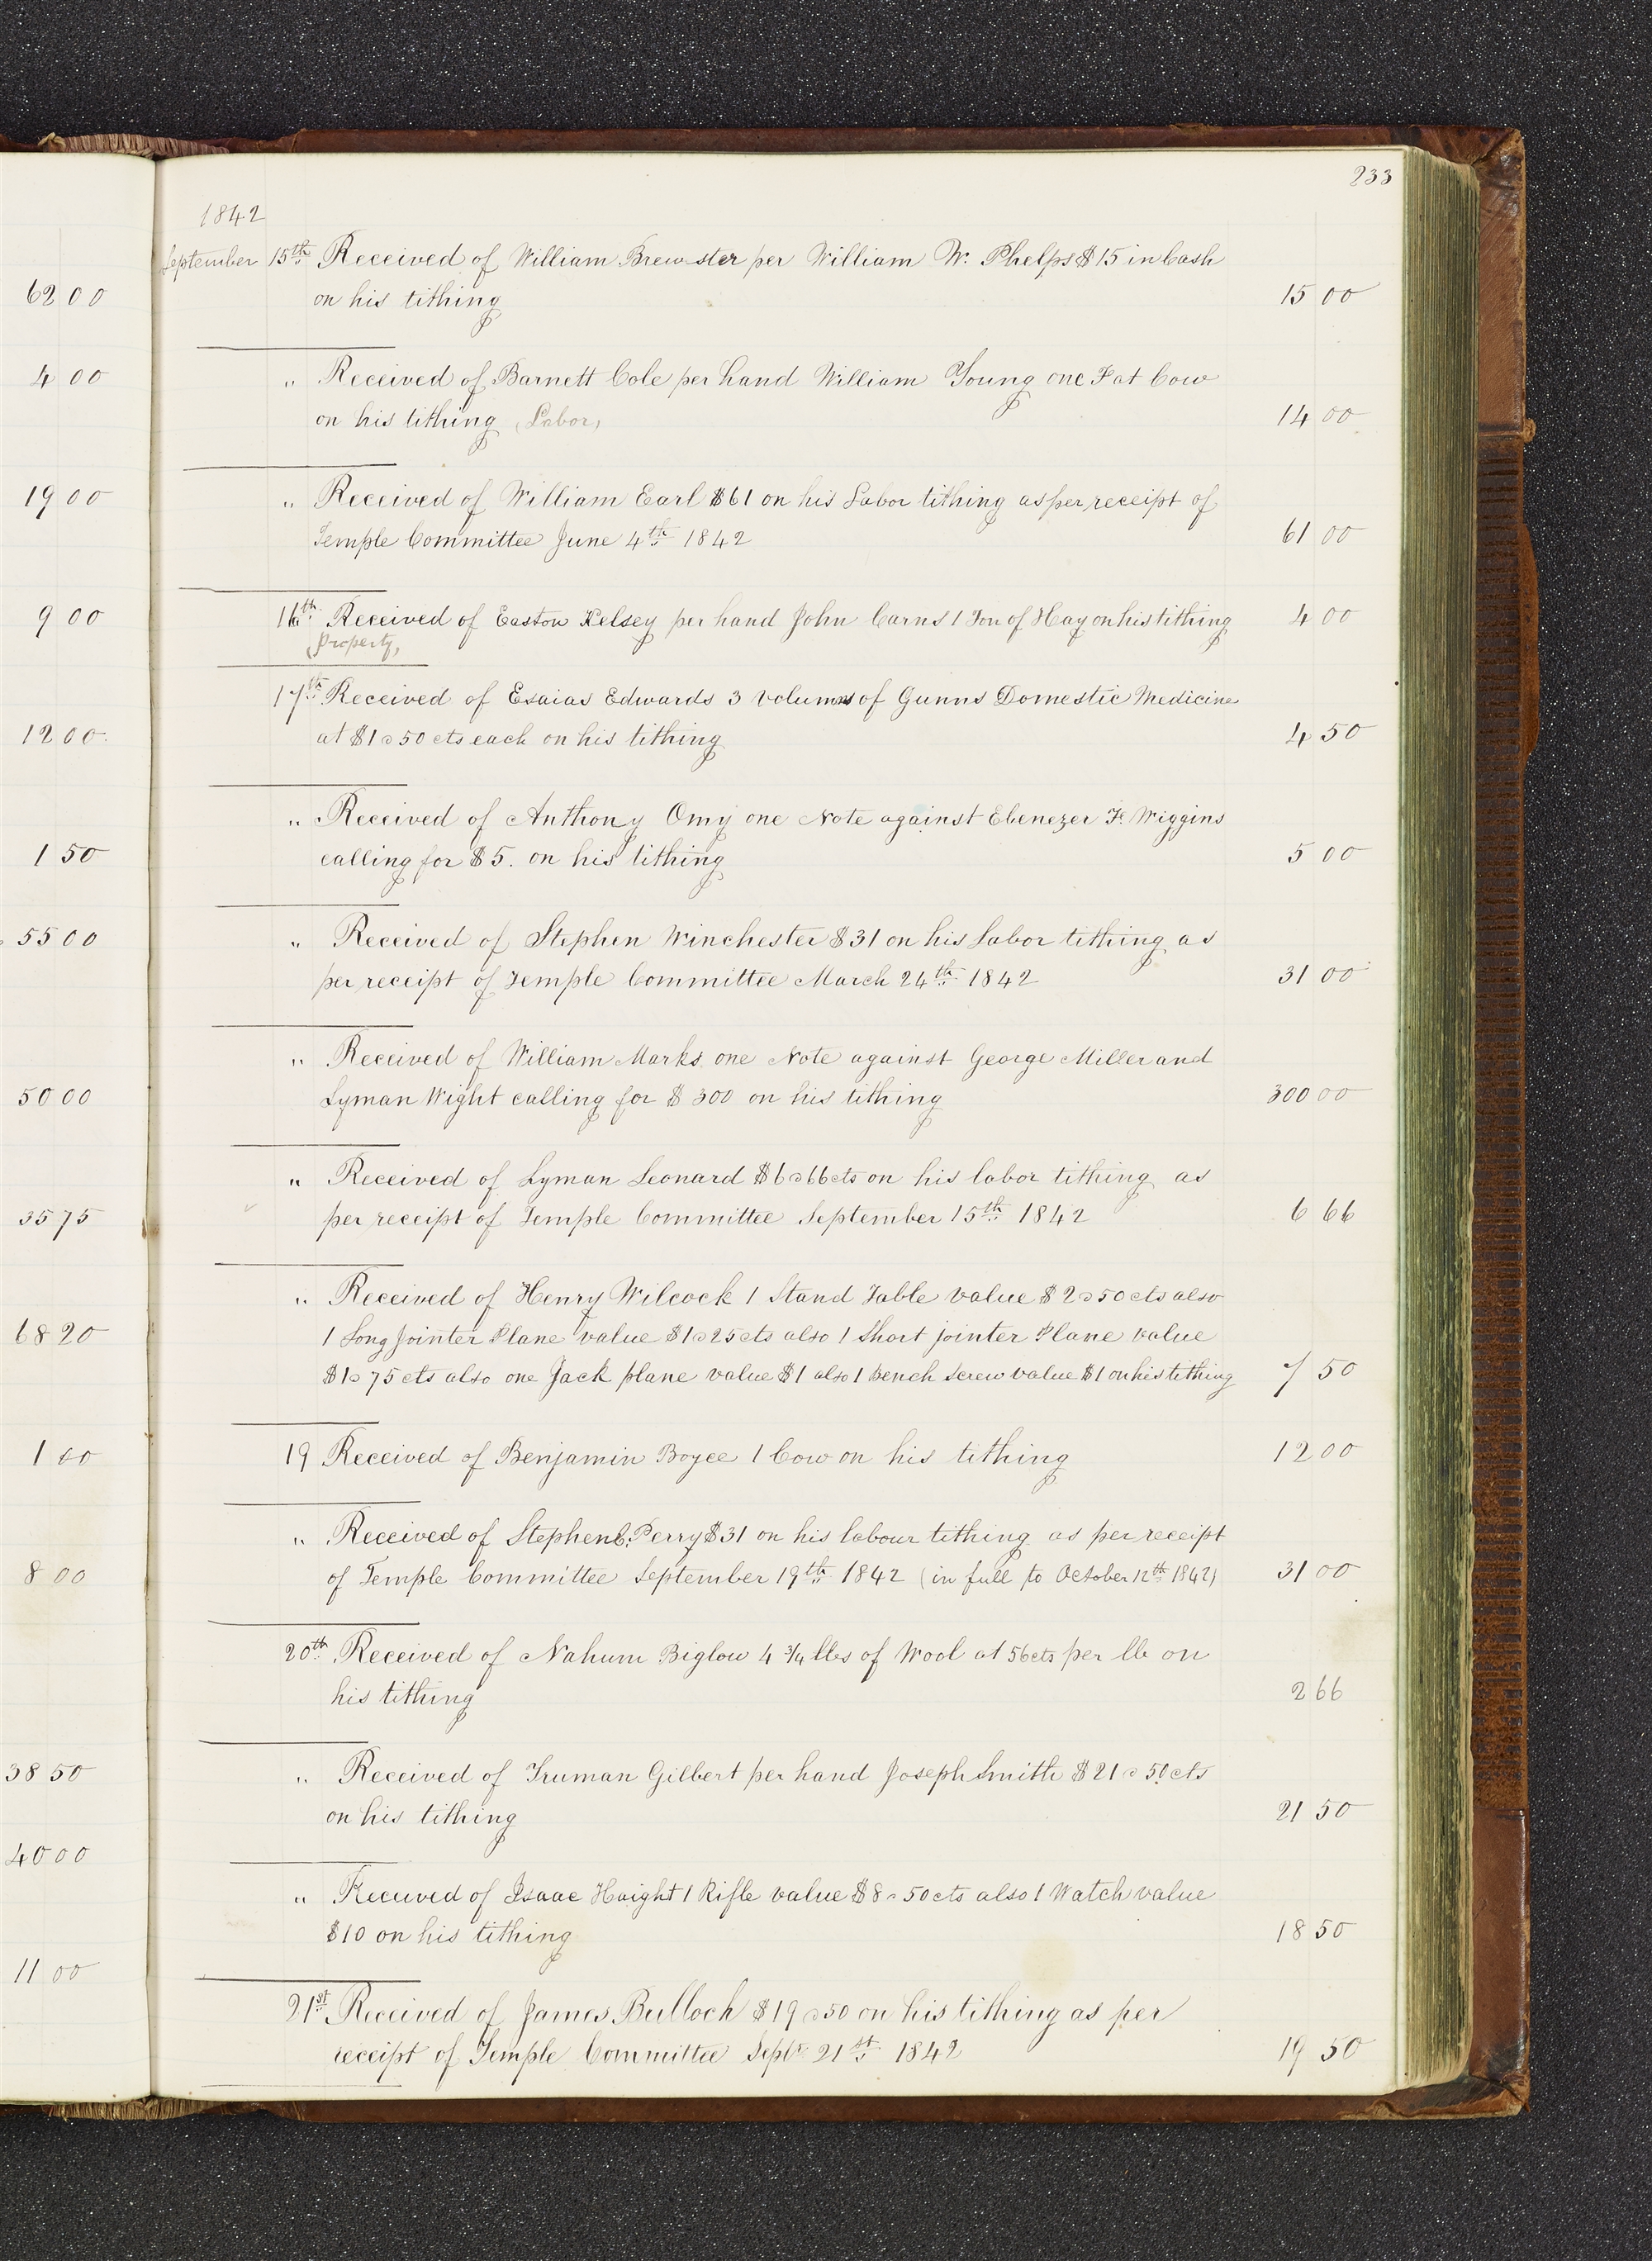 62 00
4 00
19 00
9 00
12 00
1 50
55 00
50 00
35 75
68 20
1
8 00
38 50
40 00
11 00
233
1842
September 15th Received of William Brewster per William W. Phelps $15 in Cash
on his tithing 15 00
" Received of Barnett Cole per hand William Young one Fat Cow
on his tithing (Labor) 14 00
" Received of William Earl $61 on his Labor tithing as per receipt of
Temple Committee June 4th 1842 61 00
16th Received of Easton Kelsey per hand John Carns 1 Ton of Hay on his tithing 4 00
(Property)
17th Received of Esaias Edwards 3 volumes of Gunns Domestic Medicine
at $1 " 50 cts each on his tithing 4 50
" Received of Anthony Omy one Note against Ebenezer F. Wiggins
calling for $5. on his tithing 5 00
" Received of Stephen Winchester $31 on his Labor tithing as
per receipt of Temple Committee March 24th 1842 31 00
" Received of William Marks one Note against George Miller and
Lyman Wight calling for $300 on his tithing 300 00
" Received of Lyman Leonard $6 " 66 cts on his labor tithing as
per receipt of Temple Committee September 15th 1842 6 66
" Received of Henry Wilcock 1 Stand Table value $2 " 50 cts also
1 Long Jointer Plane value $1 " 25 cts also 1 Short jointer Plane value
$1 " 75 cts also one Jack plane value $1 also 1 Bench Screw value $1 on his tithing 7 50
19 Received of Benjamin Boyce 1 Cow on his tithing 12 00
" Received of Stephen C. Perry $31 on his labour tithing as per receipt
of Temple Committee September 19th 1842 (in full to October 12th 1842) 31 00
20th Received of Nahum Biglow 4 3/4 lbs of Wool at 56 cts per lb on
his tithing 2 66
" Received of Truman Gilbert per hand Joseph Smith $21 " 50 cts
on his tithing 21 50
" Received of Isaac Haight 1 Rifle value $8 " 50 cts also 1 Watch value
$10 on his tithing 18 50
21st Received of James Bulloch $19 " 50 on his tithing as per
receipt of Temple Committee Septr 21st 1842 19 50